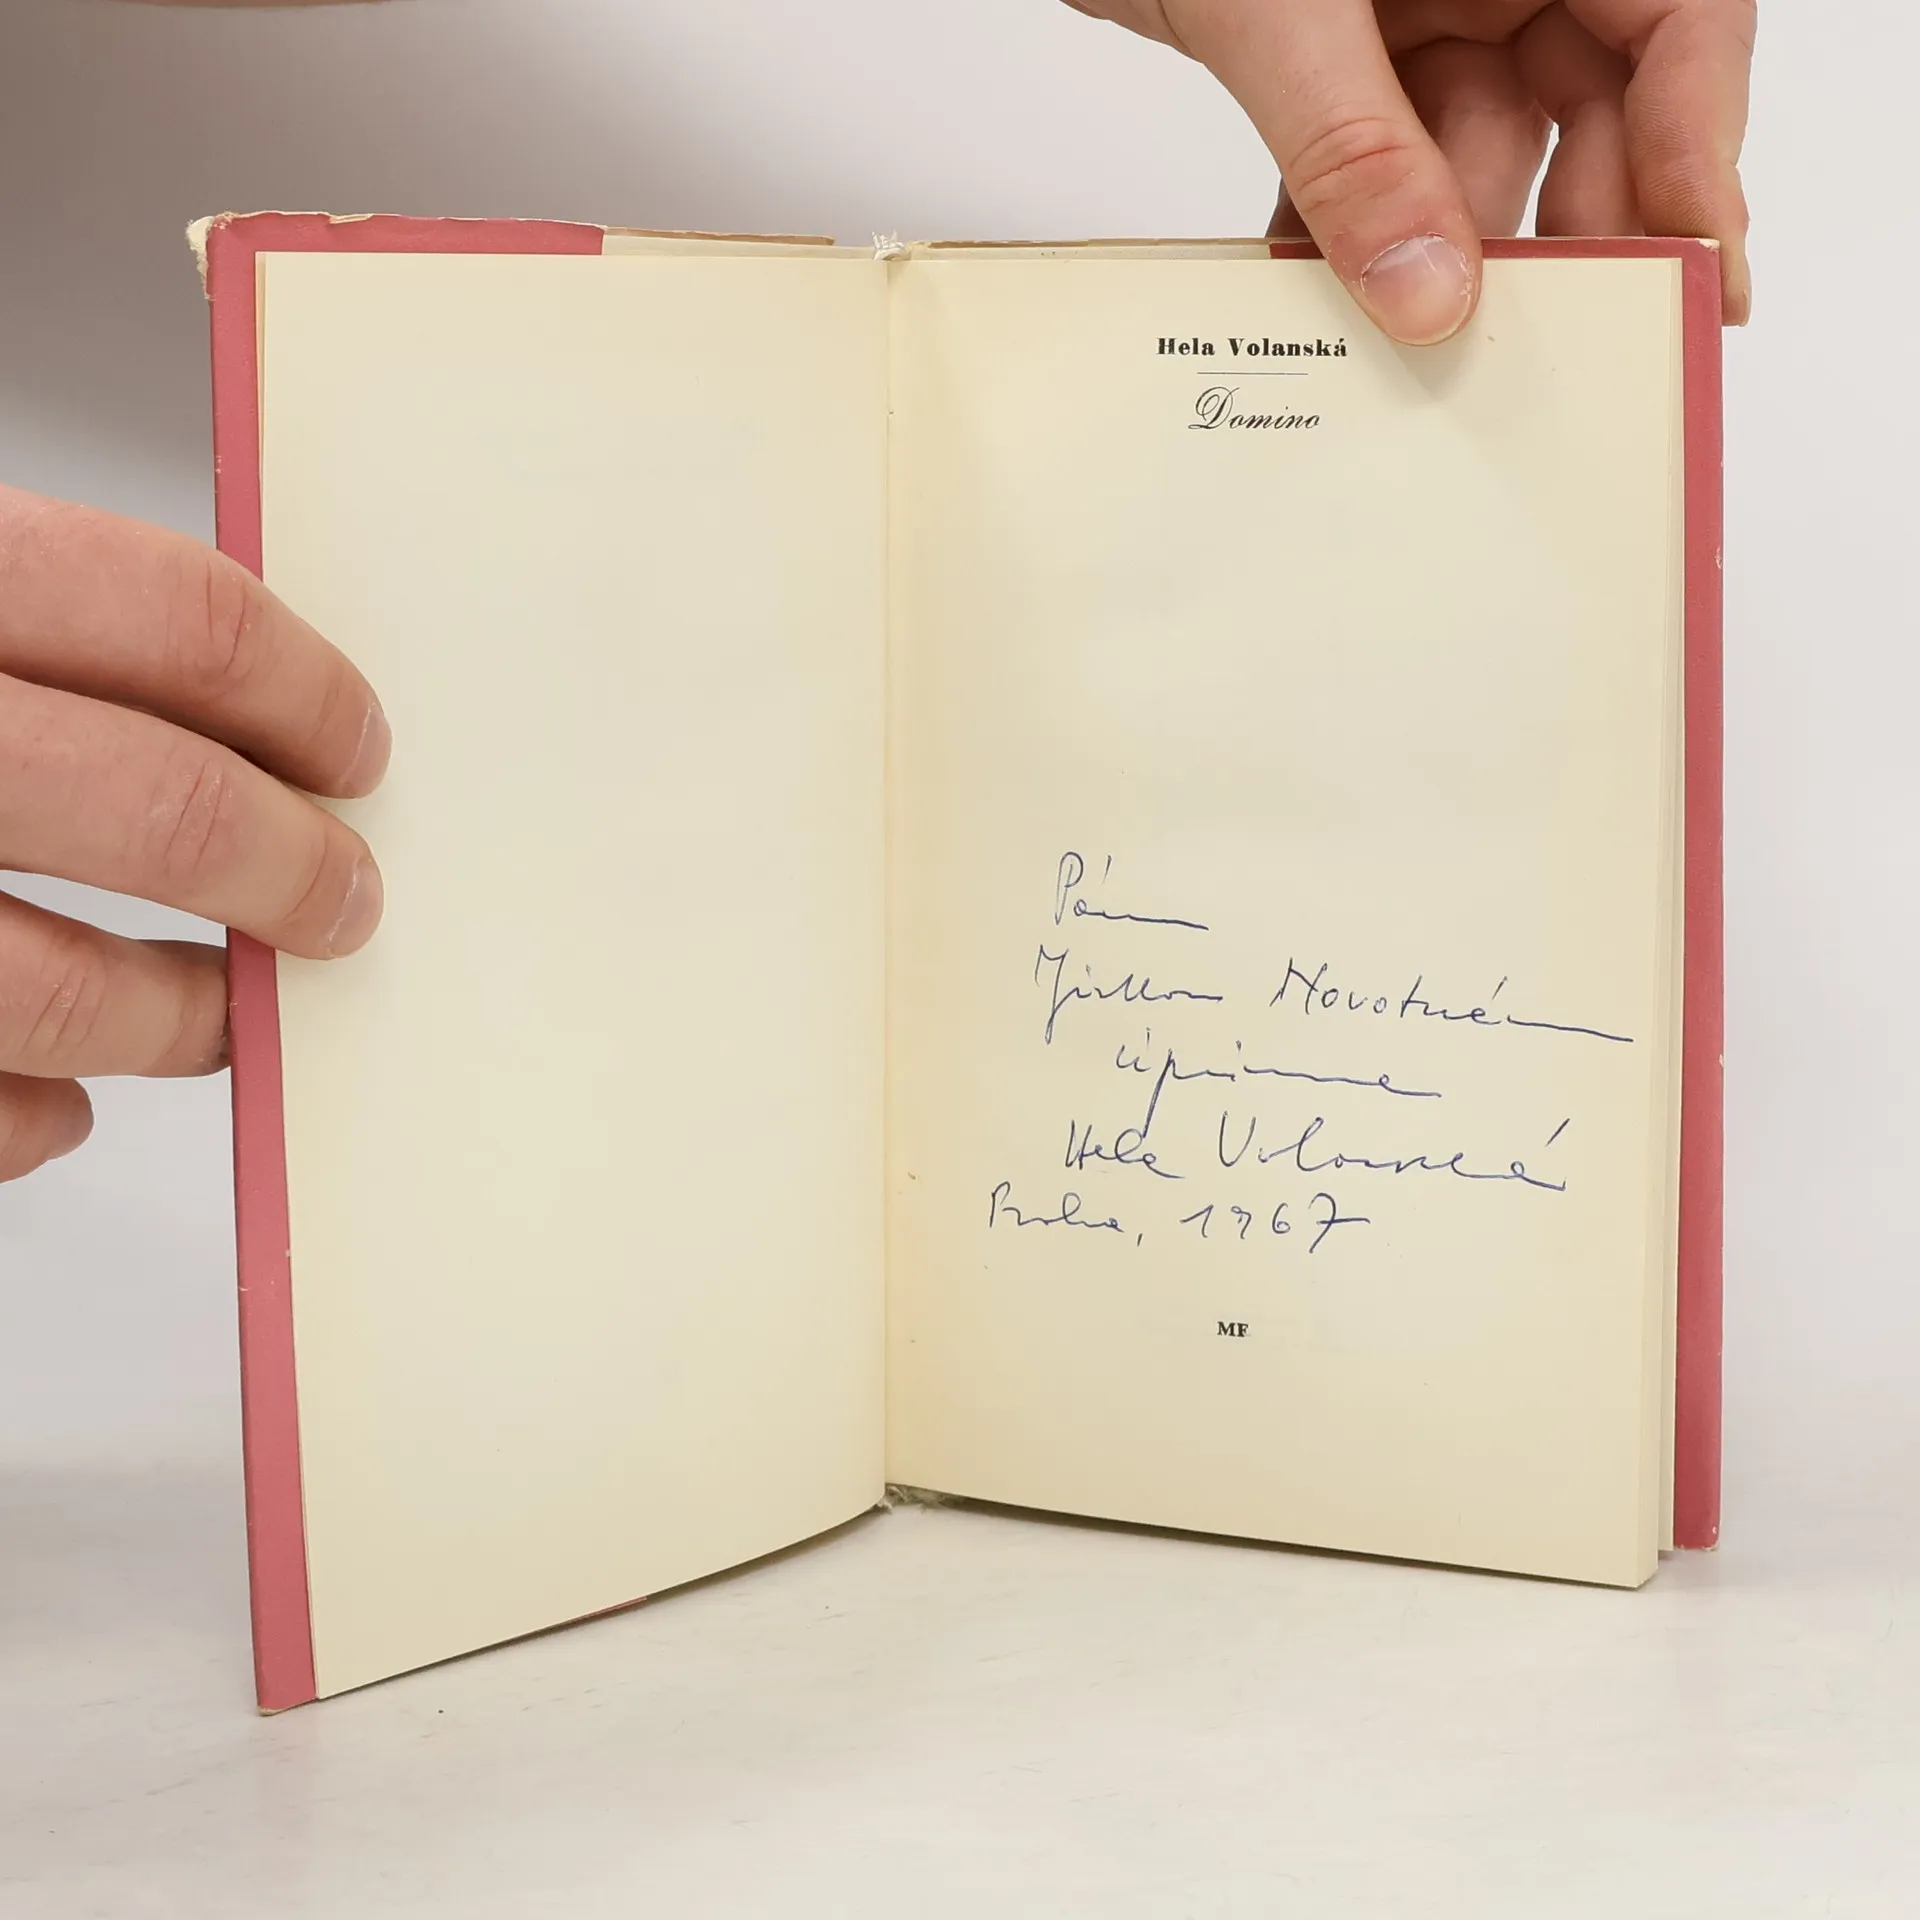 Hela Volanská
Domino
Pánu
Novotnému
úprimne
Hela Volanská
Praha, 1967
MF